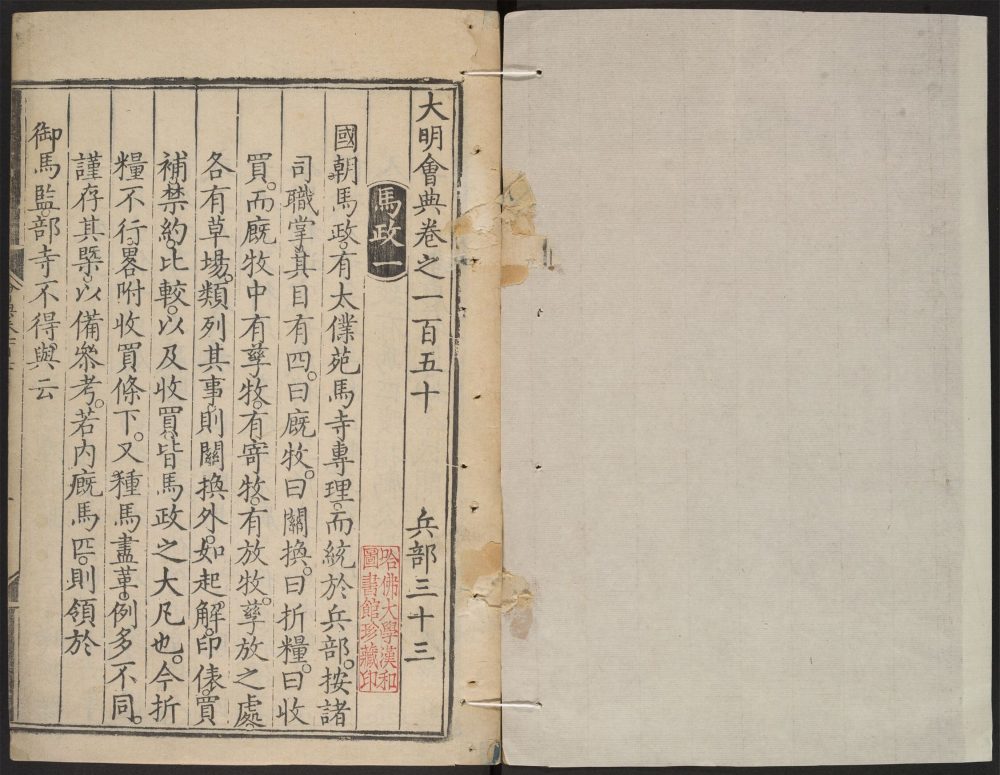 大明會典卷之一百五十 兵部三十三
馬政一
國朝馬政。有太僕苑馬寺專理。而統於兵部。按諸
司職掌。其目有四。曰廐牧。曰關換。曰折糧。曰收
買。而廐牧中有孳牧。有寄牧。有放牧。孳放之處。
各有草場。類列其事。則關換外。如起解。印俵。買
補。禁約。比較。以及收買。皆馬政之大凡也。今折
糧不行。畧附收買條下。又種馬盡革。例多不同。
謹存其槩。以備叅考。若內廐馬匹。則領於
御馬監。部寺不得與云
哈佛大學漢和
圖書館珍藏印